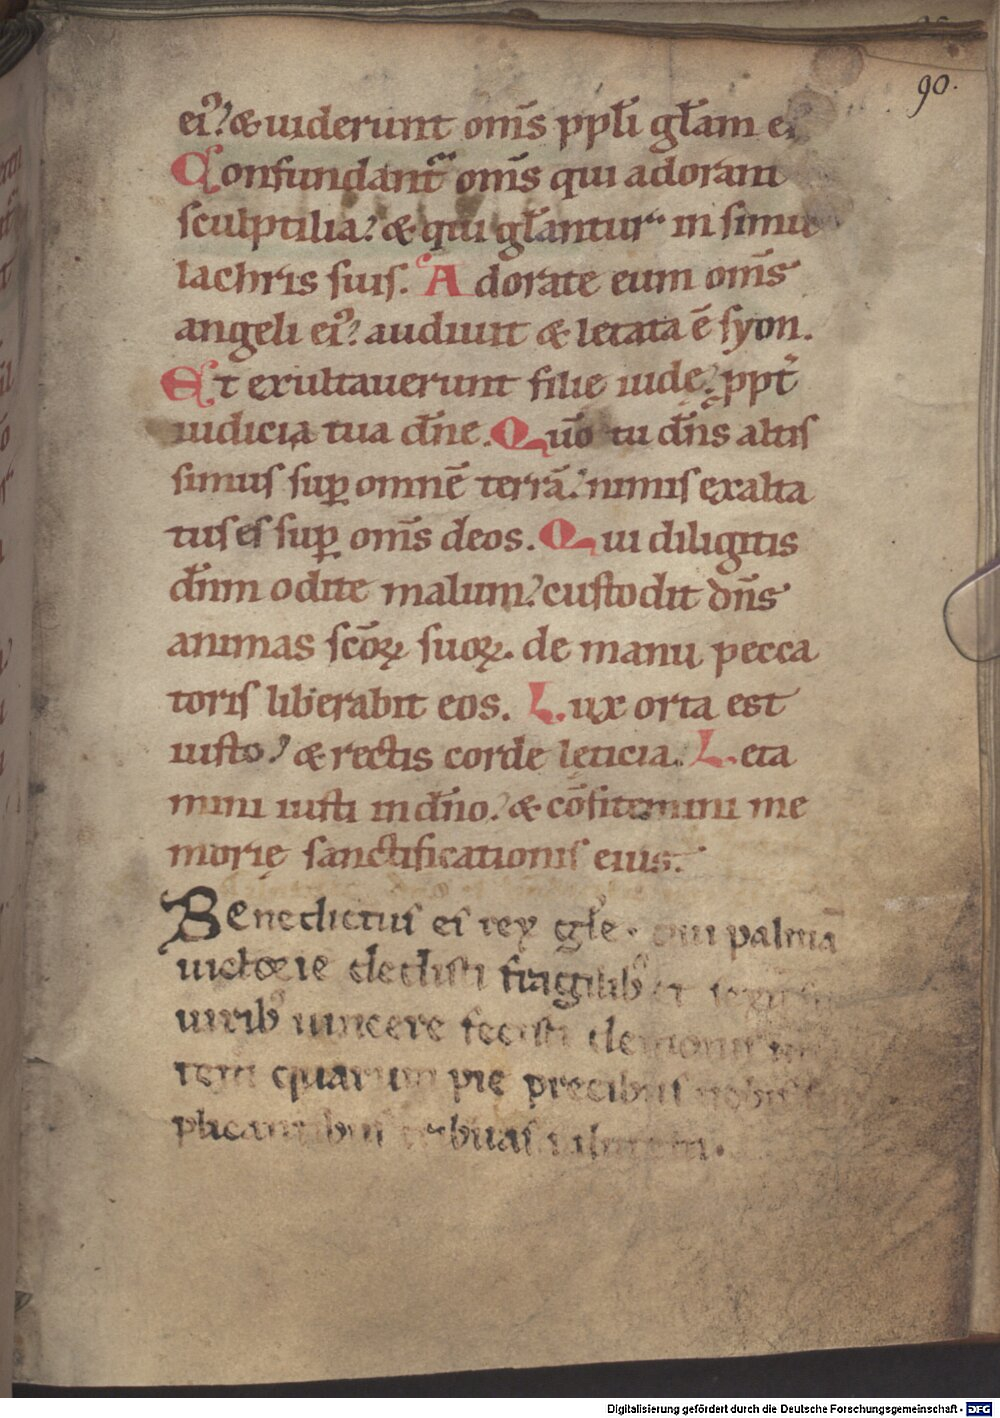 90.
ei᷒? & uiderunt om̅s ppl̅i gl̅am ei
Confundant᷑ om̅s qui adorant
sculptilia? & qui gl̅antur in simu
lachris suis. Adorate eum om̅s
angeli ei᷒? audiuit & letata e̅ syon.
Et exultauerunt filie iude? ppt̅
iudicia tua dn̅e. Qu̅o tu dn̅s altis
simus suꝑ omne̅ terra̅? nimis exalta
tus es suꝑ om̅s deos. Qui diligitis
dn̅m odite malum? custodit dn̅s
animas sc̅oꝝ suoꝝ. de manu pecca
toris liberabit eos. Lux orta est
iusto? & rectis corde leticia. Leta
mini iusti in dn̅o? & co̅fitemini me
morię sanctificationis eius.
Benedictus es rex gl̅e. qui palma̅
uictorie dedisti fragilib᷒ et
uirib᷒ uincere fecisti demonis
quarum pie precibus nobis
plicantibus tribuas
Digitalisierung gefördert durch die Deutsche Forschungsgemeinschaft - DFG